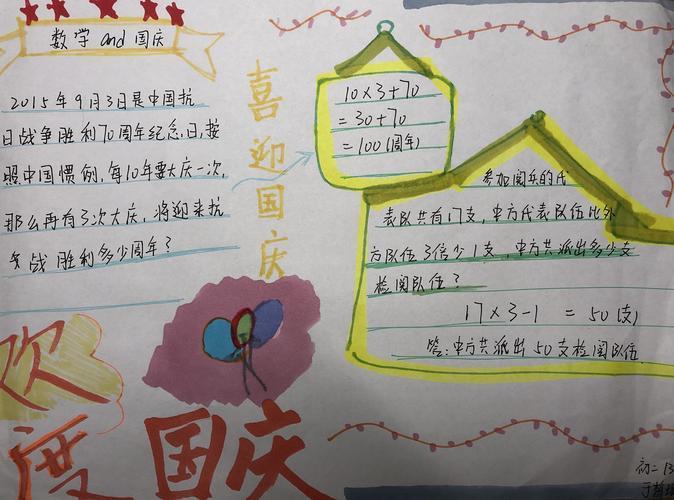 数学 and 国庆
2015年9月3日是中国抗
日战争胜利70周年纪念日,按
照中国惯例,每10年要大庆一次,
那么再有3次大庆,将迎来抗
战胜利多少周年?
喜迎国庆
10×3+70
=30+70
=100(周年)
参加阅兵的代
表队共有17支,中方代表队伍比外
方队伍3倍少1支,中方共派出多少支
检阅队伍?
17×3-1 =50(支)
答:中方共派出50支检阅队伍
欢度国庆
初二13